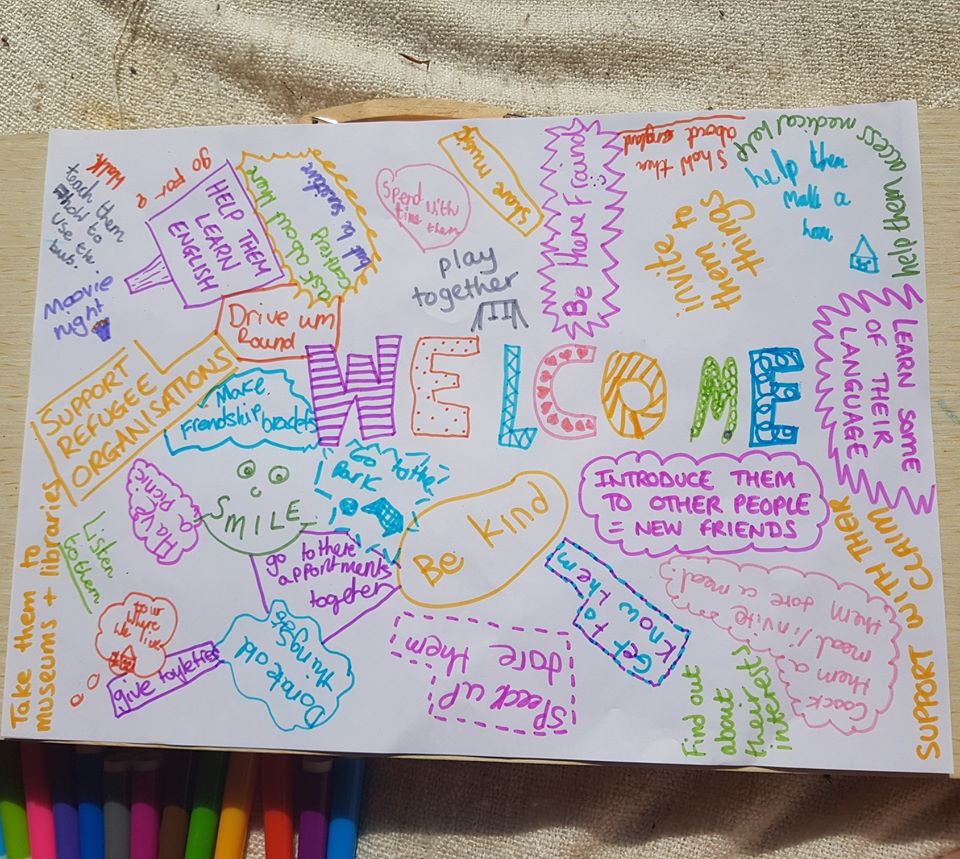 WELCOME
walk
go for a
teach them
how to
use the
bus.
Moovie
night
HELP THEM
LEARN
ENGLISH
ask about there
contrey
but be
sensetive
Spend
time with
them
Share music
play
together
Be there fraind
Show them
about england
invite
them to
things
help them
make a
home
help them access medical help
LEARN SOME
OF THEIR
LANGUAGE
Drive um
Round
SUPPORT
REFUGEE
ORGANISATIONS
Make
friendship bracelets
Have
picnic
SMILE
Go to the
Park
Be kind
INTRODUCE THEM
TO OTHER PEOPLE
= NEW FRIENDS
Take them to
museums + libraries
Listen
to them
go to there
apportments
together
tour
where
we live
give toyleties
Donate old
things
SPeeck up
fore them
Get to
know them
Find out
about
their
interests
Coock
them a
meal / invite
them fore a meal
SUPPORT WITH THER
CLAIM